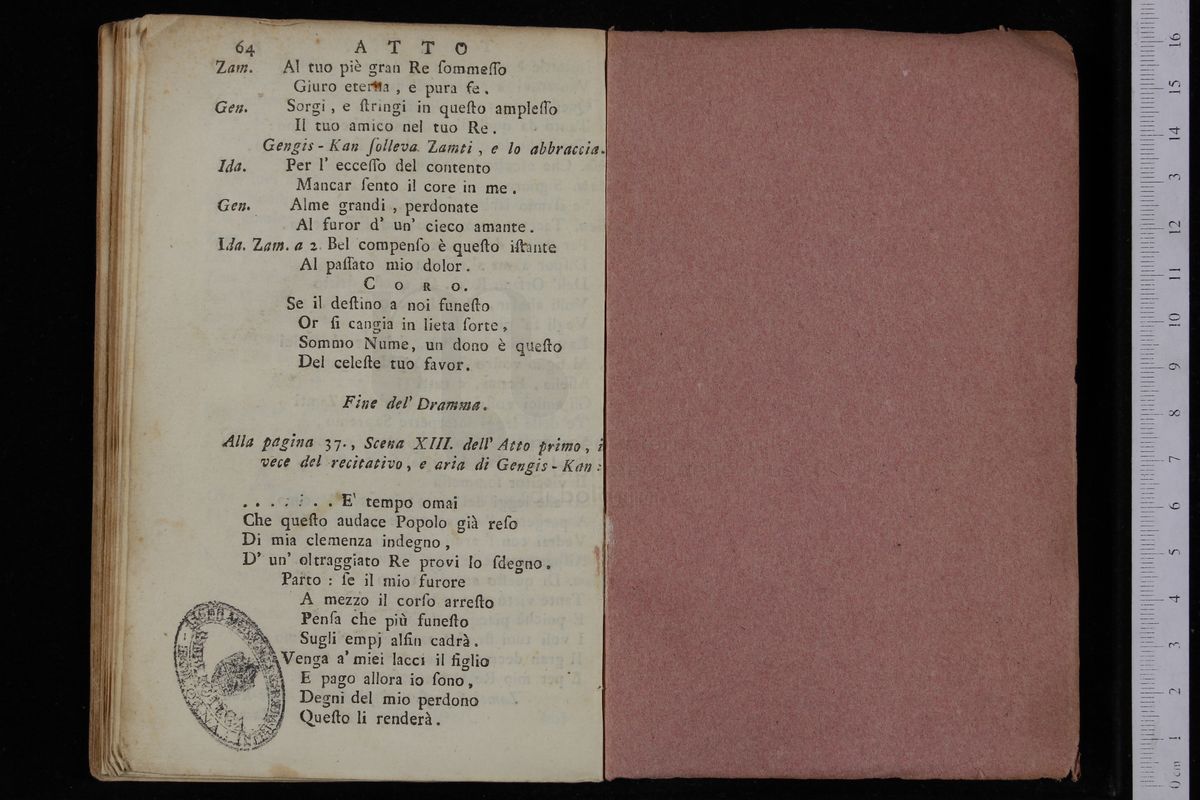 64 ATTO
Zam. Al tuo piè gran Re ſommeſſo
Giuro eterna , e pura fe .
Gen. Sorgi , e ſtringi in queſto ampleſſo
Il tuo amico nel tuo Re .
Gengis - Kan ſolleva Zamti , e lo abbraccia.
Ida. Per l' ecceſſo del contento
Mancar ſento il core in me .
Gen. Alme grandi , perdonate
Al furor d' un' cieco amante .
Ida. Zam. a 2 Bel compenſo è queſto iſtante
Al paſſato mio dolor .
CORO.
Se il deſtino a noi funeſto
Or ſi cangia in lieta ſorte ,
Sommo Nume, un dono è queſto
Del celeſte tuo favor .
Fine del' Dramma .
Alla pagina 37. , Scena XIII. dell' Atto primo , i
vece del recitativo , e aria di Gengis - Kan :
. . . . . . . E' tempo omai
Che queſto audace Popolo già reſo
Di mia clemenza indegno ,
D' un' oltraggiato Re provi lo ſdegno .
Parto : ſe il mio furore
A mezzo il corſo arreſto
Penſa che più funeſto
Sugli empj alfin cadrà .
Venga a' miei lacci il figlio
E pago allora io ſono ,
Degni del mio perdono
Queſto li renderà .
16
15
14
13
12
11
10
9
8
7
6
5
4
3
2
1
0 cm